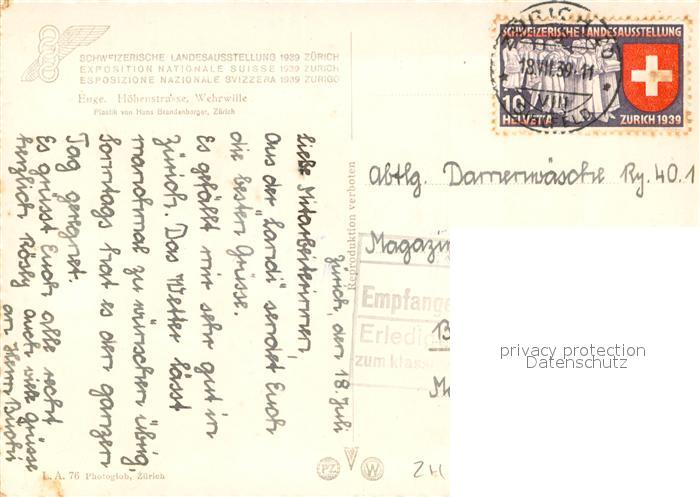 SCHWEIZERISCHE LANDESAUSSTELLUNG 1939 ZÜRICH
EXPOSITION NATIONALE SUISSE 1939 ZURICH
ESPOSIZIONE NAZIONALE SVIZZERA 1939 ZURIGO
Enge. Höhenstrasse, Wehrwille
Plastik von Hans Brandenberger, Zürich
Zürich, den 18. Juli
Liebe Mitarbeiterinnen,
Aus der "Landi" sendet Euch
die besten Grüsse.
Es gefällt mir sehr gut in
Zürich. Das Wetter lässt
manchmal zu wünschen übrig,
Sonntags hat es den ganzen
Tag geregnet.
Es grüsst Euch alle recht
herzlich Rösly
auch viele Grüsse
an Herrn
L. A. 76 Photoglob, Zürich
Reproduktion verboten
PZ
W
SCHWEIZERISCHE LANDESAUSSTELLUNG
10
HELVETIA
ZURICH 1939
18.VII.39.-11
VIII
Abtlg. Damenwäsche Ry. 40.1
Magazin
Empfange
Erledig
zum klass
B
M
24
privacy protection
Datenschutz